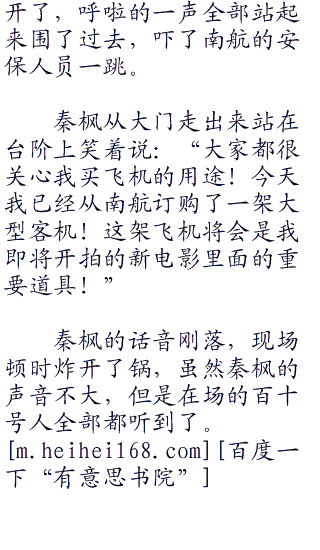 开了，呼啦的一声全部站起
来围了过去，吓了南航的安
保人员一跳。
秦枫从大门走出来站在
台阶上笑着说：“大家都很
关心我买飞机的用途！今天
我已经从南航订购了一架大
型客机！这架飞机将会是我
即将开拍的新电影里面的重
要道具！”
秦枫的话音刚落，现场
顿时炸开了锅，虽然秦枫的
声音不大，但是在场的百十
号人全部都听到了。
[m.heihei168.com][百度一
下“有意思书院”]